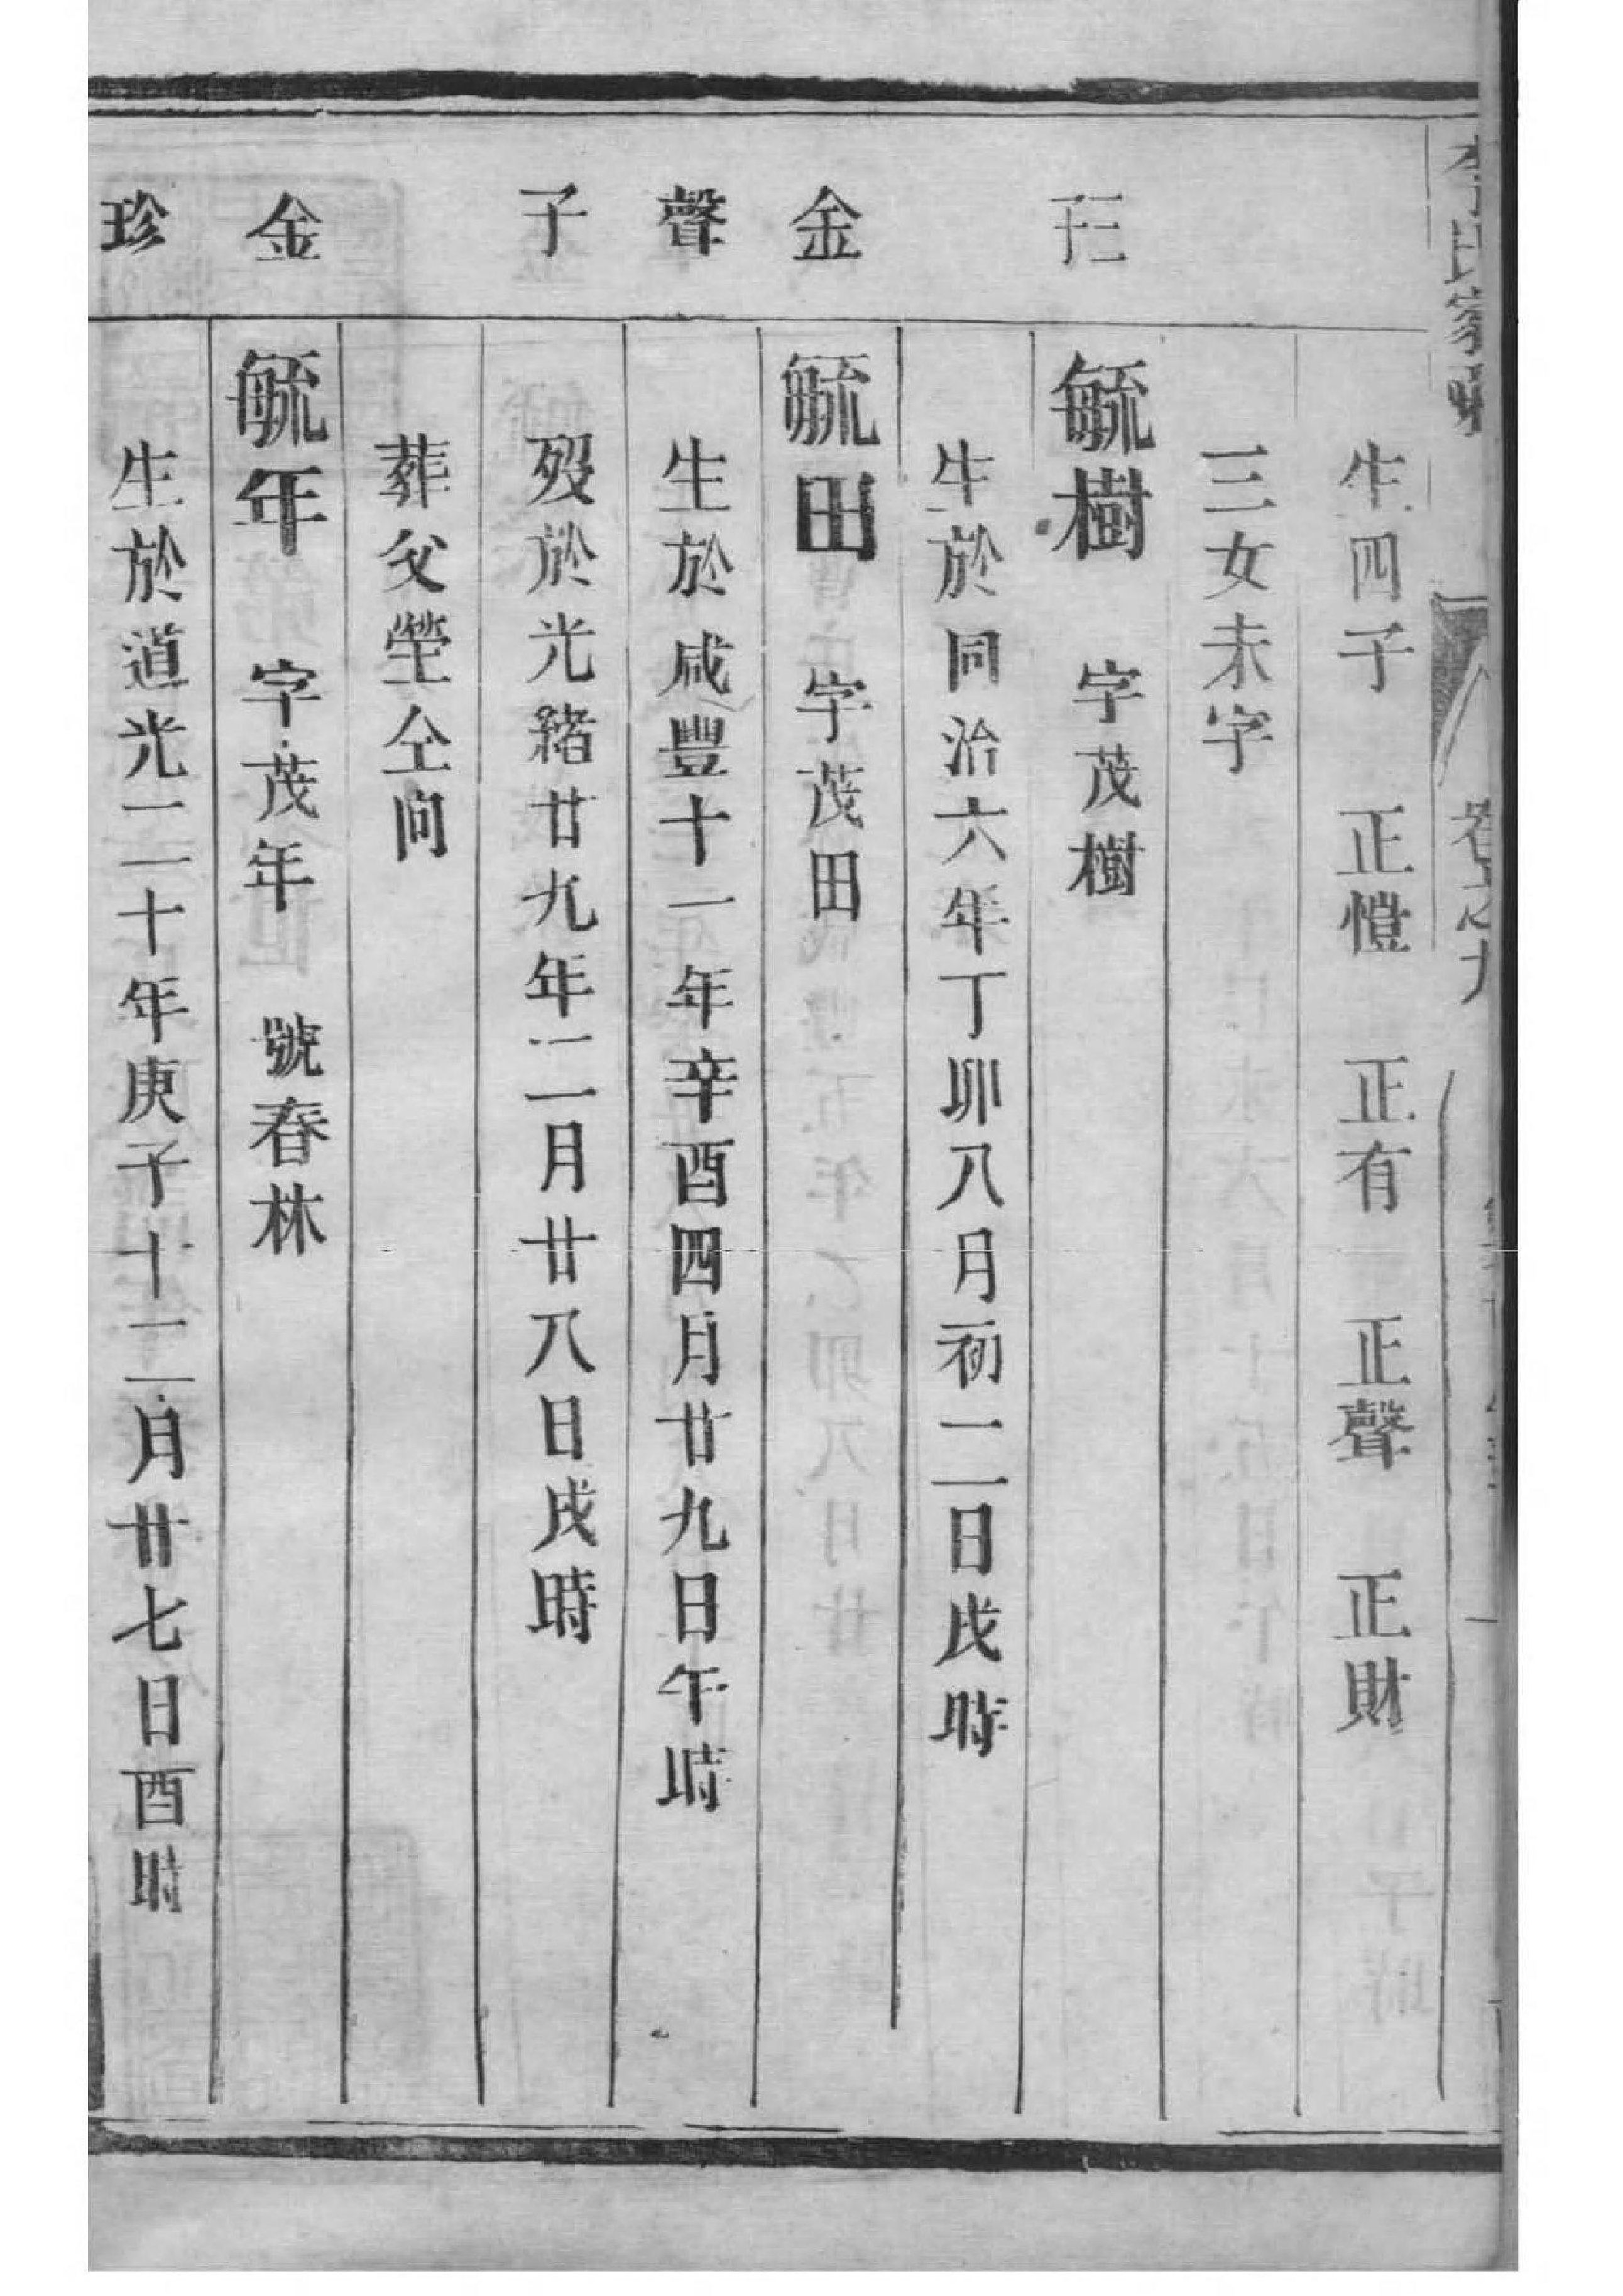 生四子 正愷 正有 正聲 正財
三女未字
二子
毓樹 字茂樹
生於同治六年丁卯八月初二日戌時
金
毓田 字茂田
聲
生於咸豐十一年辛酉四月廿九日午時
子
歿於光緒廿九年二月廿八日戌時
葬父塋仝向
金
毓年 字茂年 號春林
珍
生於道光二十年庚子十二月廿七日酉時